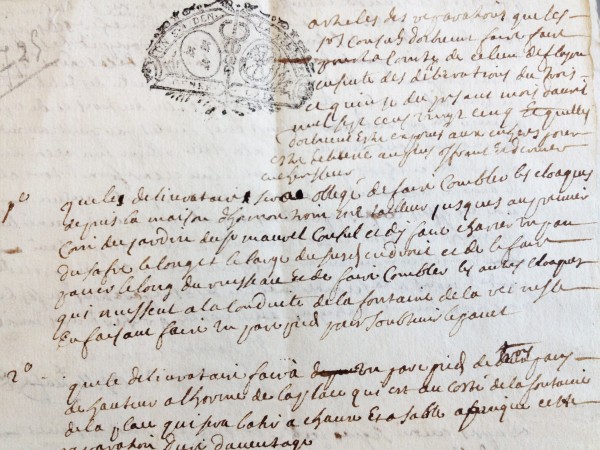 1725
articles des reparations que les
srs Consuls doibvent faire faire
pour la Comte de ce lieu de
ensuite des deliberations du trois
et quinse du presant mois d'avril
mil sept cens vingt cinq Et quelles
doibvent estre exposes aux encheres pour
estre delivrée au plus offrant et dernier
encherisseur
1o que le delivrataire sera oblige de faire Combler les cloaques
depuis la maison d' tailleur jusques au premier
Coin du jardin du sr manuel Consul et dy faire charier un pan
du safre le long et le large du susd endroit et de le faire
paver le long du ruisseau Et de faire Combler les autres cloaques
qui nuissent a la Conduite de la fontaine de la
En faisant faire un pare pied pour soubtenir le pavé
2o que le delivrataire faira un pare pied de trois pans
de hauteur a l'horme de la place qui est au costé de la fontaine
de la place qui sera bati a chaux Et a sable afin que cette
reparation dure davantage